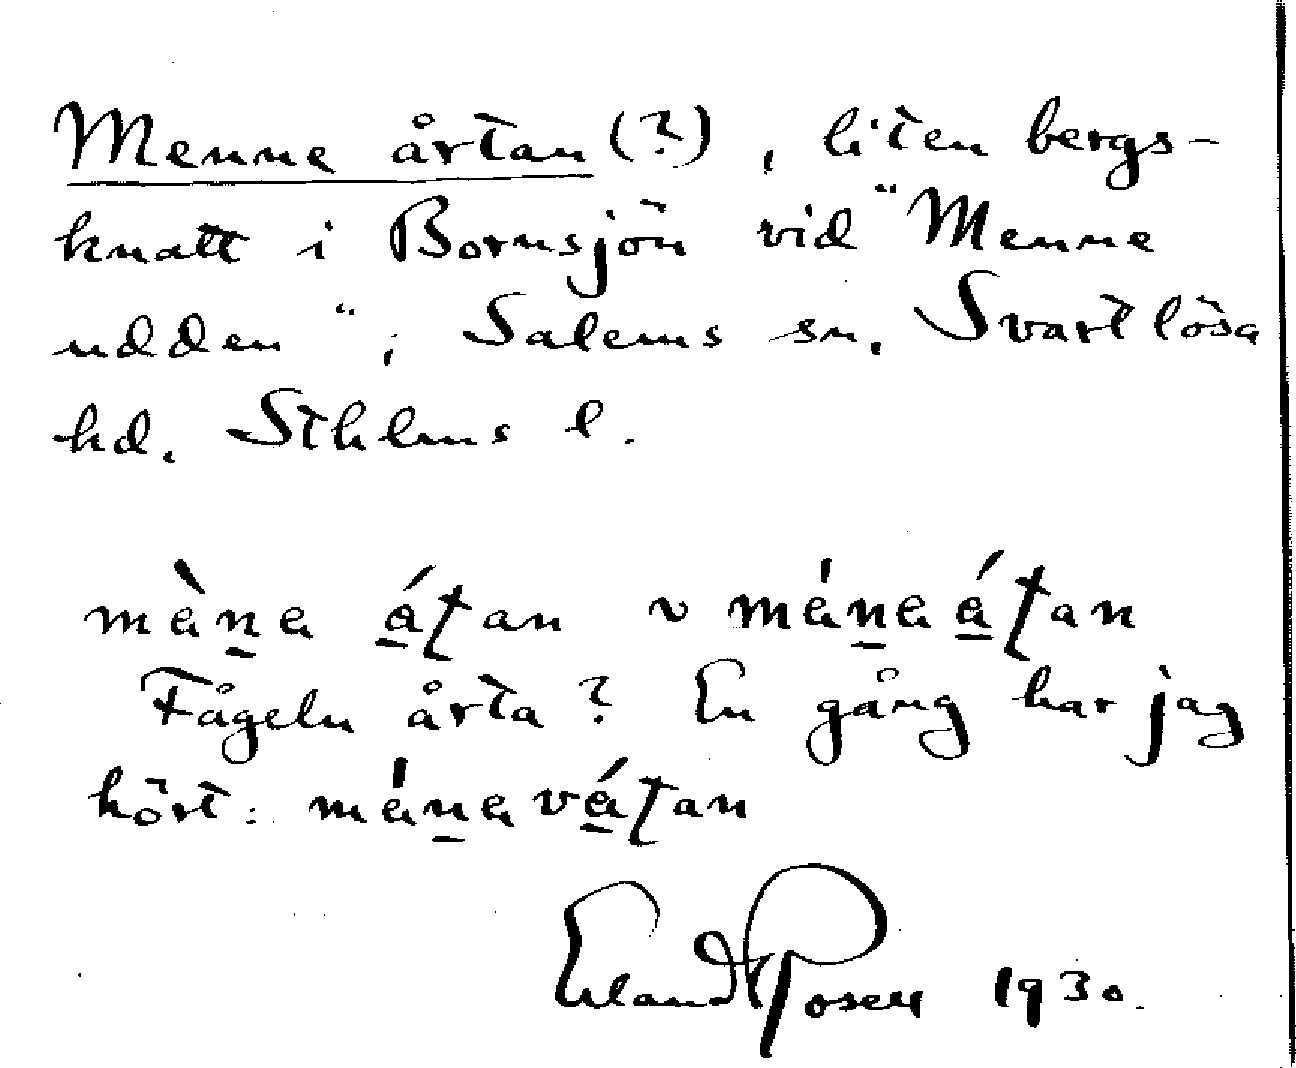 Menne årtan (?), liten bergs-
knatt i Bornsjön vid "Menne
udden", Salems sn, Svartlösa
hd. Sthlms l.
mèṉa á̱ʈan ~ méṉaá̱ʈan
Fågeln årta? En gång har jag
hört: méṉavá̱ʈan
Erland Rosell 1930.